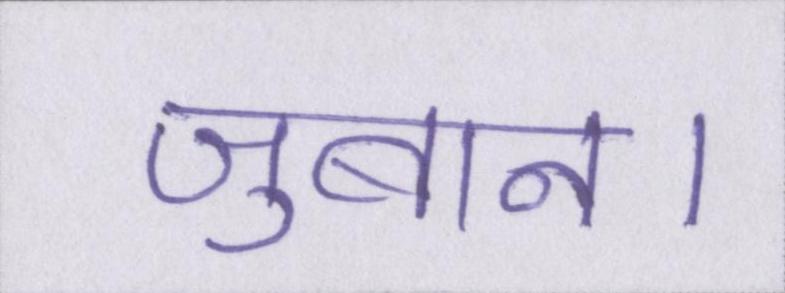 जुबान।